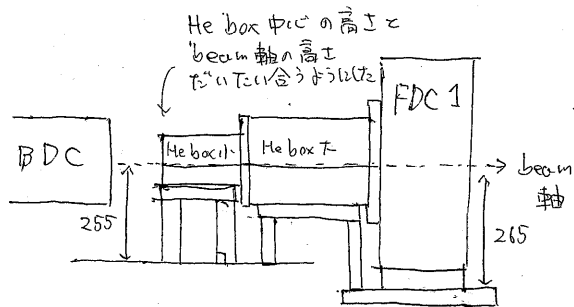 He box 中心の高さと
beam 軸の高さ
だいたい合うようにした
BDC
He box 小
He box 大
FDC 1
beam
軸
255
265